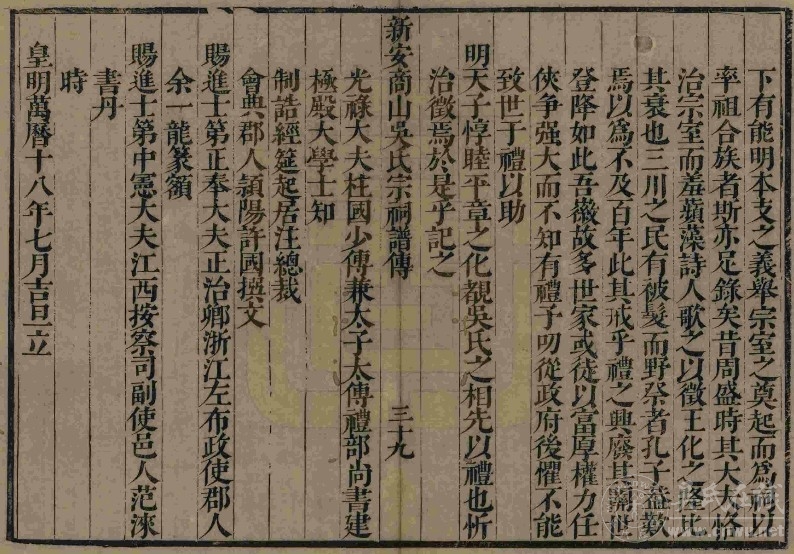 下有能明本支之義舉宗室之奠起而爲祠以
率祖合族者斯亦足錄矣昔周盛時其大夫恪
治宗室而羞蘋藻詩人歌之以徵王化之隆比
其衰也三川之民有被髮而野祭者孔子益歎
焉以爲不及百年此其戎乎禮之興廢其關世
登降如此吾徽故多世家或徒以富厚權力任
俠争强大而不知有禮予叨從政府後懼不能
致世于禮以助
明天子惇睦平章之化覩吳氏之相先以禮也忻
治徵焉於是乎記之
新安商山吳氏宗祠譜傳 三十九
光祿大夫柱國少傅兼太子太傅禮部尚書建
極殿大學士知
制誥經筵起居注總裁
會典郡人潁陽許國撰文
賜進士第正奉大夫正治卿浙江左布政使郡人
余一龍篆額
賜進士第中憲大夫江西按察司副使邑人范淶
書丹
時
皇明萬曆十八年七月吉旦立